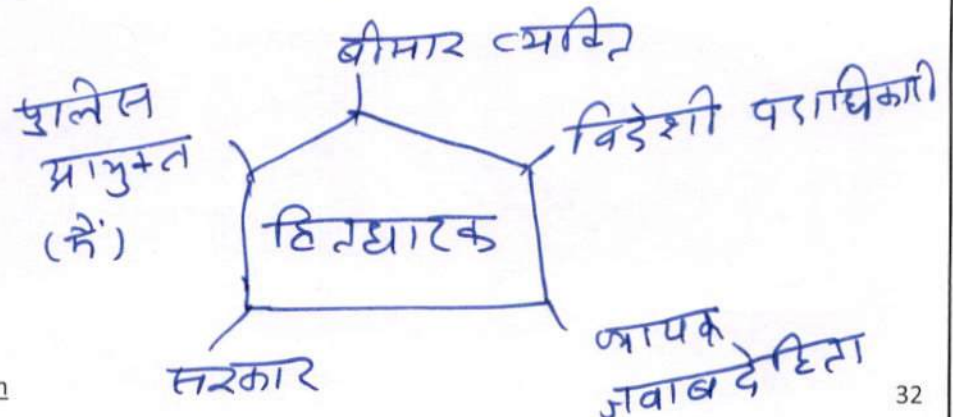 बीमार व्यक्ति
पुलिस
आयुक्त
(मैं)
विदेशी पदाधिकारी
हितधारक
सरकार
व्यापक
जवाबदेहिता
32